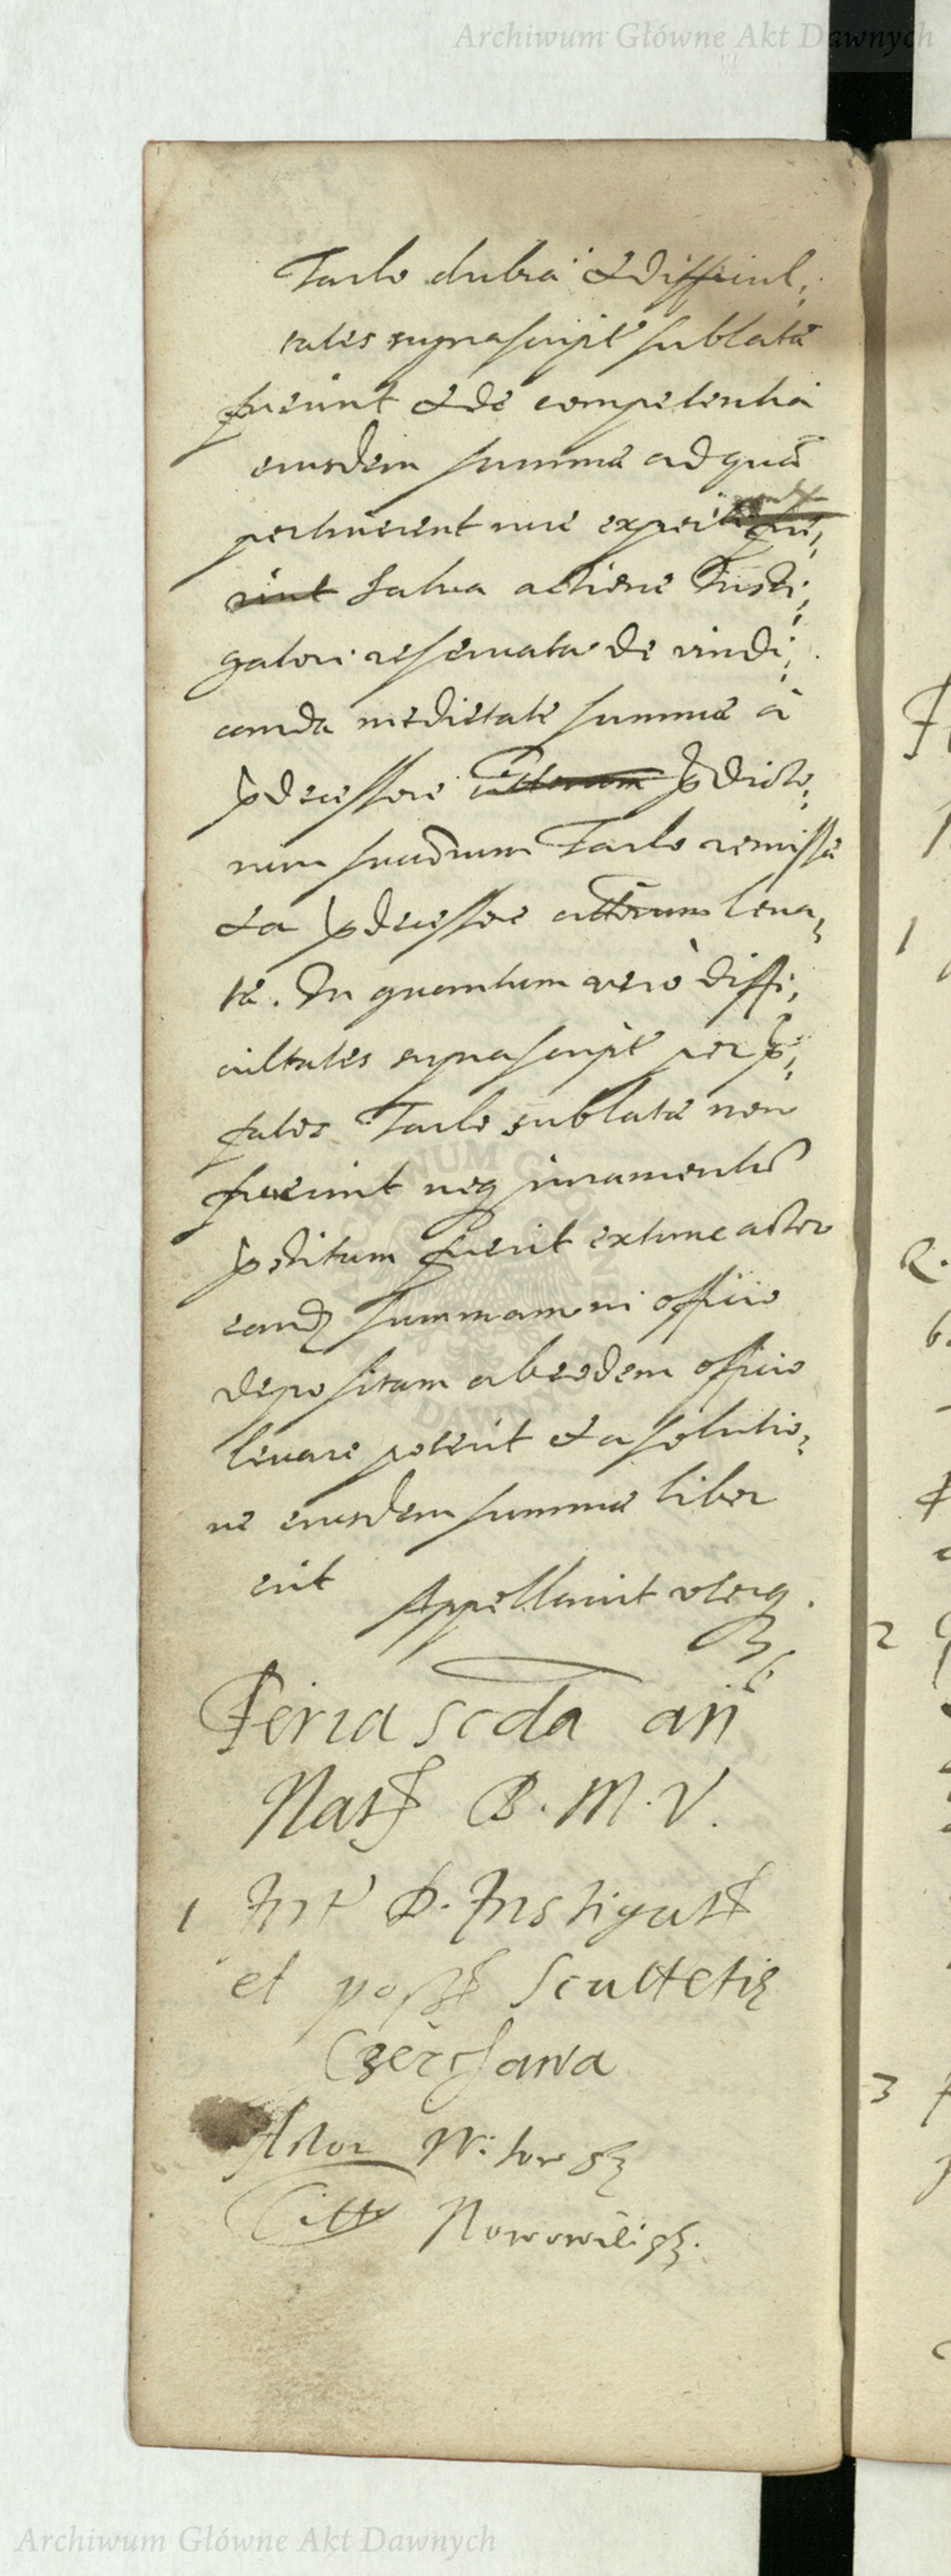 Archiwum Główne Akt Dawnych
Tarlo dubia et difficul,
tates supra script sublata
fuerint et de competentia
eiusdem summæ ad quā
pertinerent iure experti fue,
rint salva actione Insti,
gatori reservata de vindi,
canda medietate summæ à
pdecessore pdicto,
rum Tarlo remissæ
et a pdecessore actorum leva,
tæ. In quantum vero diffi,
cultates suprascript per
fatos Tarlo sublatæ non
fuerint neq iuramentū
pstitum fuerit extunc actor
eandē summam in officio
depositam ab eodem officio
levare poterit et a solutio,
ne eiusdem summæ liber
erit Appellavit uterq.
Feria scda an
Nat B. M. V.
1 Int D. Instigat
et poss Scultetiæ
Czerchawa
Actor Witowsk
Citt Nowowieisk.
1
2.
2
3
Archiwum Główne Akt Dawnych